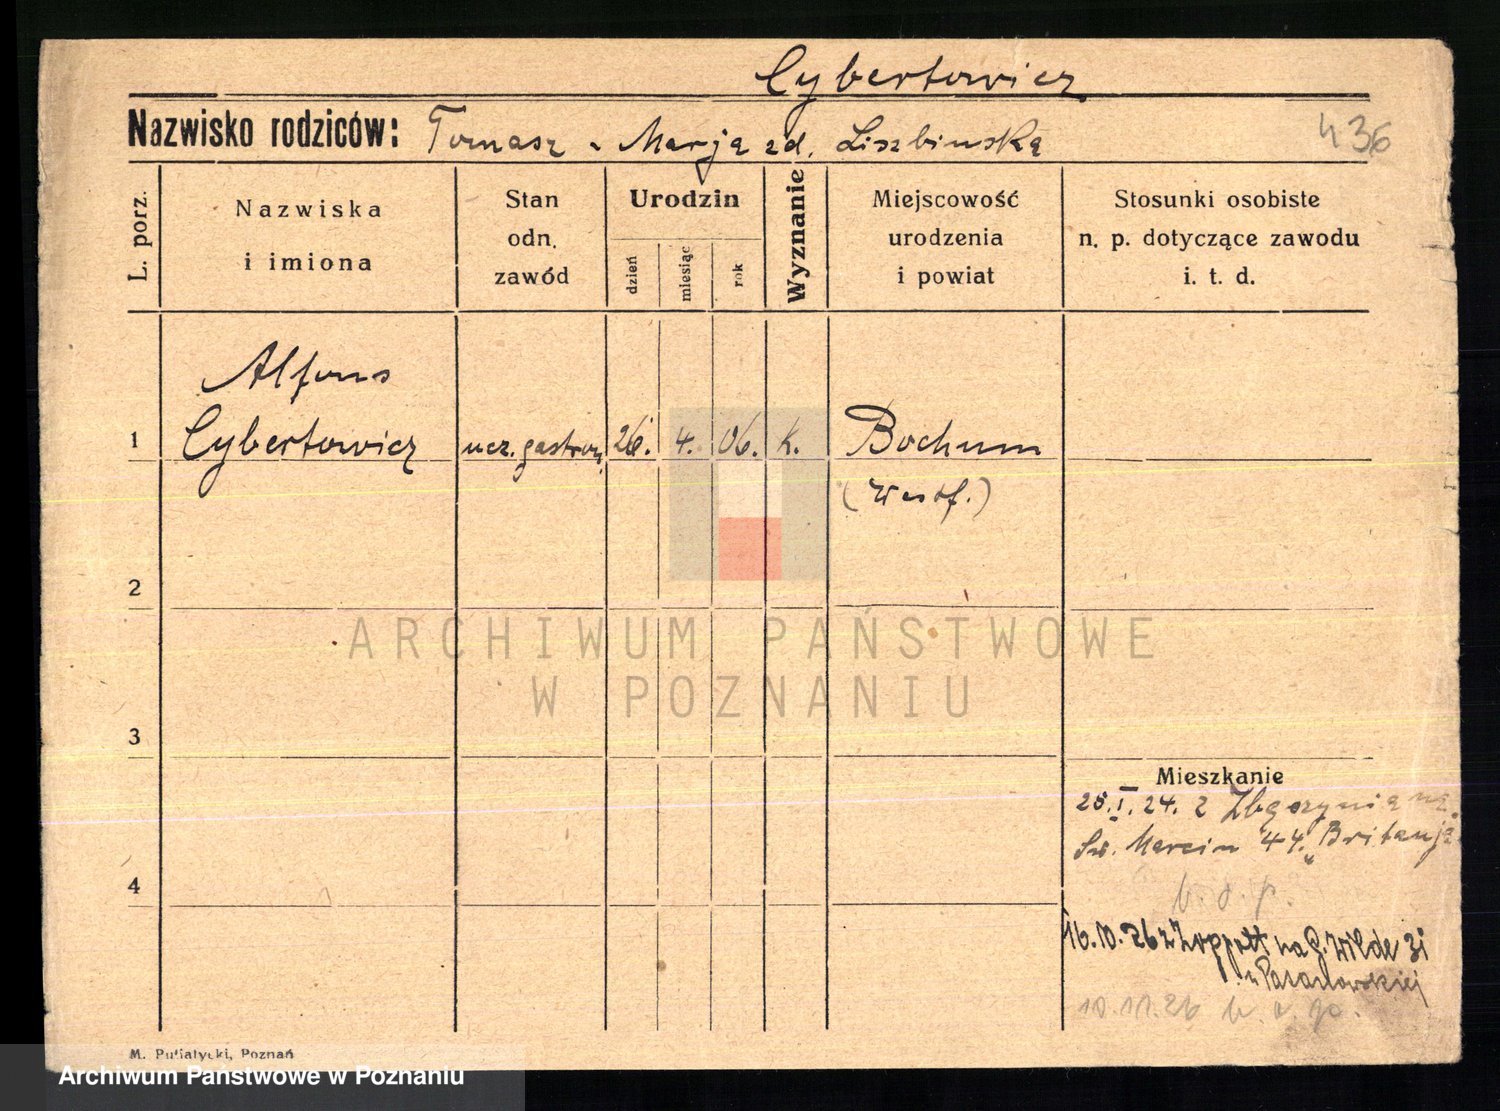 Cybertowicz
Nazwisko rodziców: Tomasz Marja zd. Liszbinska
436
L. porz.
Nazwiska
i imiona
Stan
odn.
zawód
Urodzin
dzień
miesiąc
rok
Wyznanie
Miejscowość
urodzenia
i powiat
Stosunki osobiste
n. p. dotyczące zawodu
i. t. d.
Alfons
1 Cybertowicz ucz. gastron. 26. 4. 06. k. Bochum
(Westf.)
2
ARCHIWUM PAŃSTWOWE
W POZNANIU
3
Mieszkanie
25. I. 24. z na
Św. Marcin 44. "Britanja
4
b. o. p.
16.10.26 z Zoppott na G. Wilde 31
10.11.26 b. o. p.
M. Putiatycki, Poznań
Archiwum Państwowe w Poznaniu